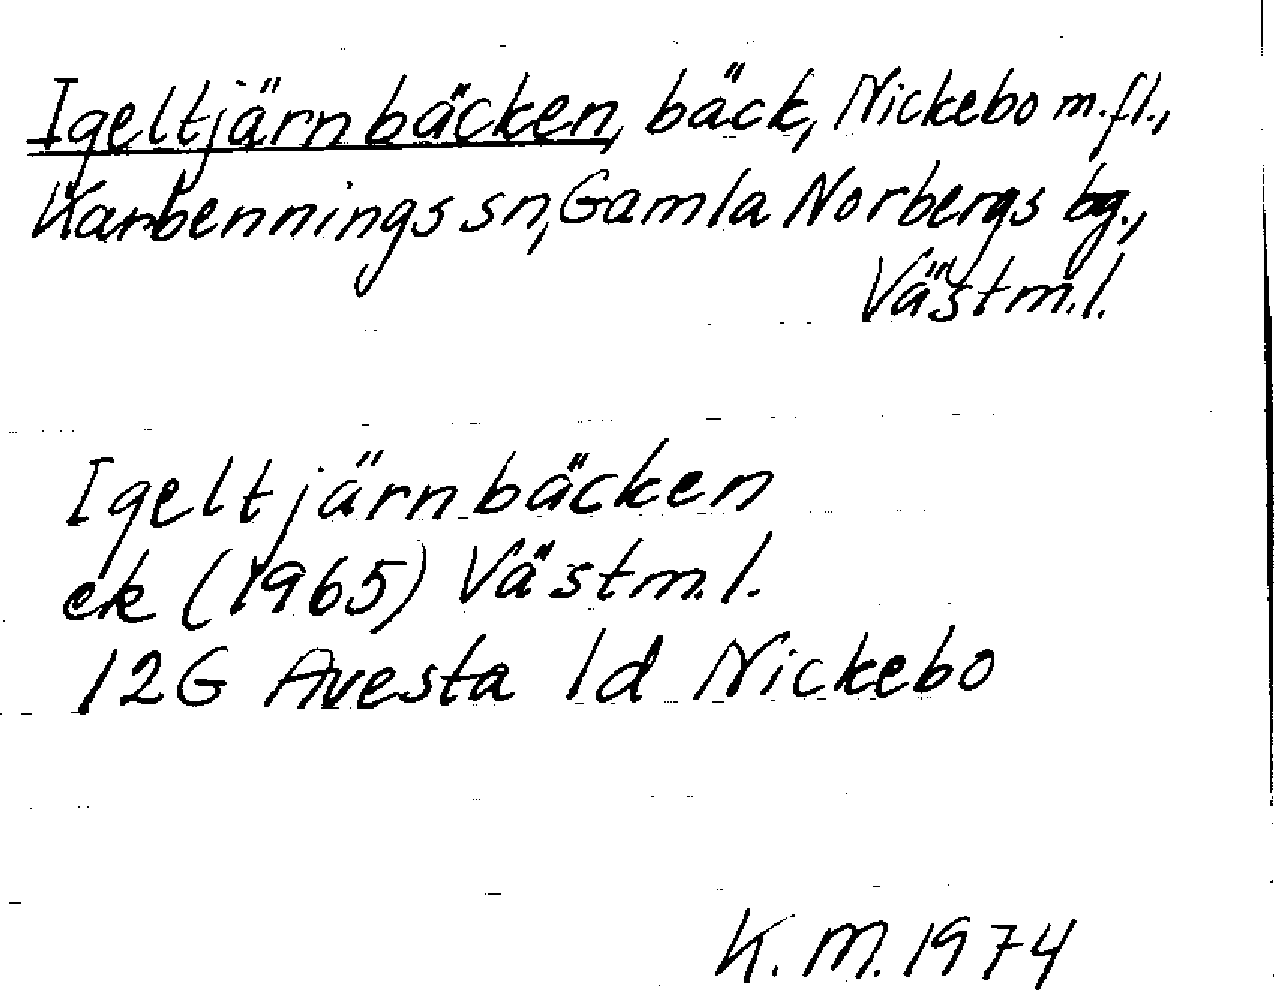 Igeltjärnbäcken, bäck, Nickebo m.fl.,
Karbennings sn, Gamla Norbergs bg.,
Västm.l.
Igeltjärnbäcken
ek (1965) Västm.l.
12G Avesta 1d Nickebo
K.M. 1974